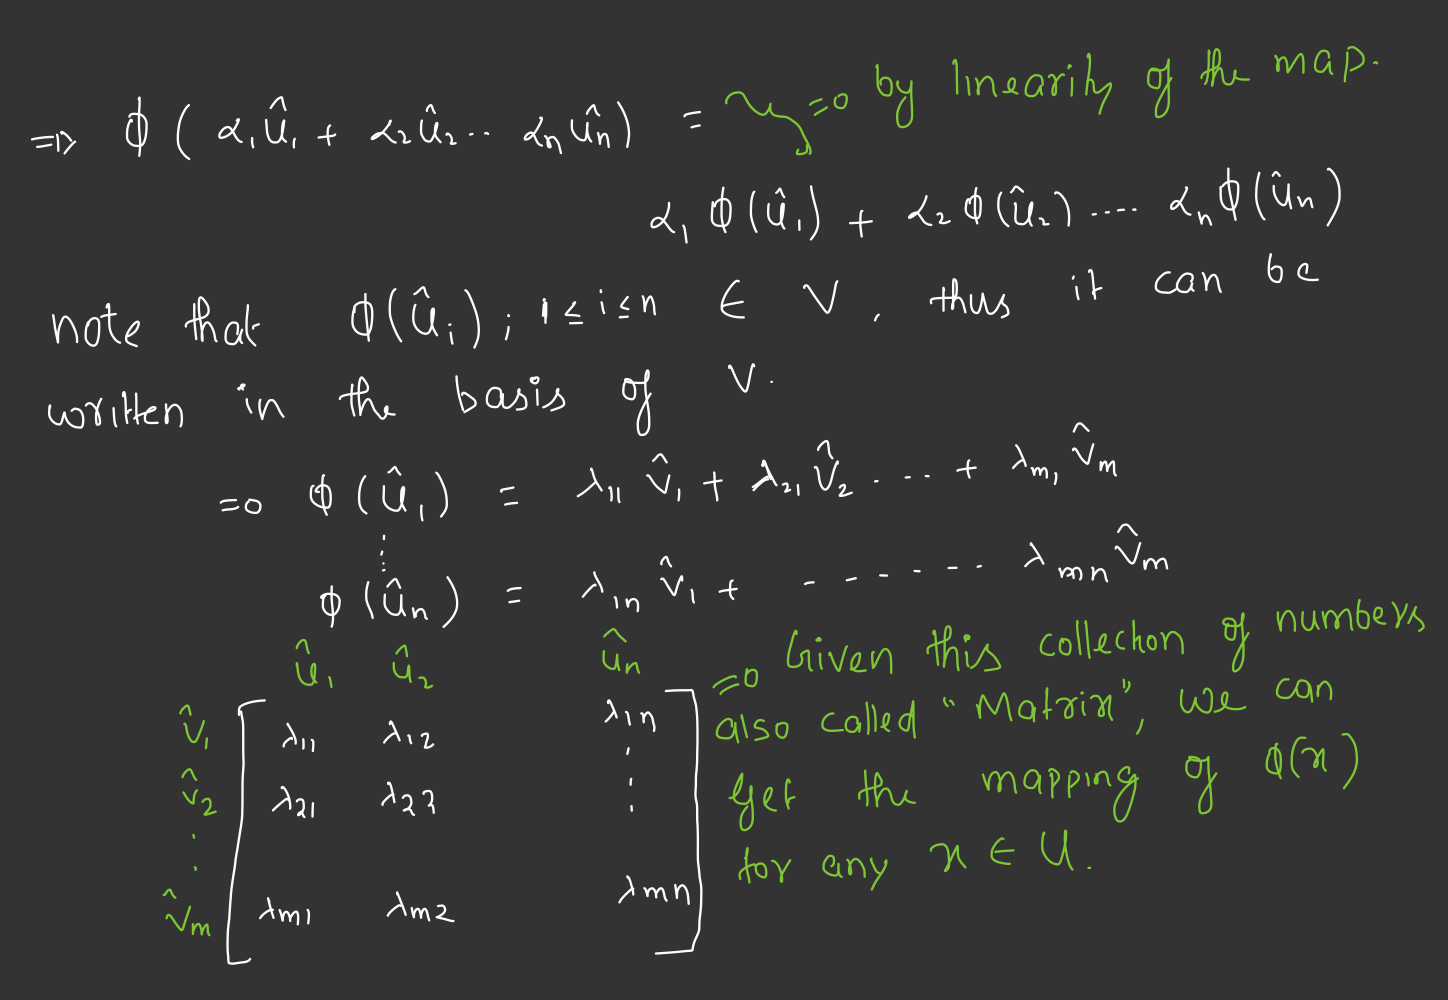 => ϕ ( α₁û₁ + α₂û₂.. αₙûₙ) = => by linearity of the map.
α₁ ϕ(û₁) + α₂ ϕ(û₂) .... αₙ ϕ(ûₙ)
note that ϕ(ûᵢ); 1 ≤ i ≤ n ∈ V, thus it can be
written in the basis of V.
=> ϕ(û₁) = λ₁₁ v̂₁ + λ₂₁ v̂₂ .... + λₘ₁ v̂ₘ
⋮
ϕ(ûₙ) = λ₁ₙ v̂₁ + ------ λₘₙ v̂ₘ
û₁ û₂ ûₙ
v̂₁ λ₁₁ λ₁₂ λ₁ₙ
v̂₂ λ₂₁ λ₂₂ ⋮
⋮
v̂ₘ λₘ₁ λₘ₂ λₘₙ
=> Given this collection of numbers
also called "Matrix", we can
get the mapping of ϕ(x)
for any x ∈ U.